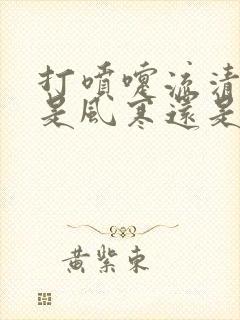 打噴嚏流清
是風寒還是
黃紫東